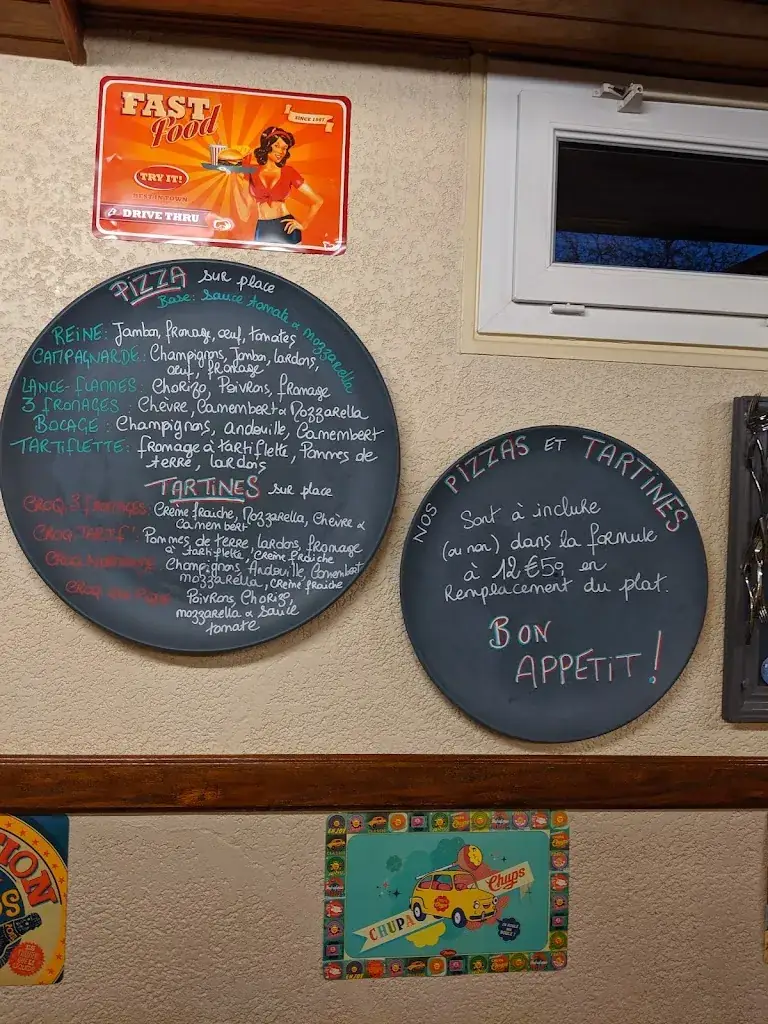 FAST
Food
SINCE 1947
TRY IT!
BEST IN TOWN
DRIVE THRU
PIZZA sur place
Base: sauce tomate & mozzarella
REINE: Jambon, fromage, œuf, tomates
CAMPAGNARDE: Champignons, Jambon, lardons,
œuf, fromage
LANCE-FLAMMES: Chorizo, Poivrons, fromage
3 FROMAGES: Chèvre, Camembert & Mozzarella
BOCAGE: Champignons, andouille, Camembert
TARTIFLETTE: fromage à tartiflette, Pommes de
terre, lardons
TARTINES sur place
CROQ 3 FROMAGES: Crème fraiche, Mozzarella, Chèvre &
camembert
CROQ TARTIF': Pommes de terre, lardons, fromage
à tartiflette, crème fraîche
CROQ NORMAND: Champignons, Andouille, Camembert
mozzarella, crème fraiche
CROQ Poivrons, Chorizo,
mozzarella & sauce
tomate
NOS PIZZAS ET TARTINES
Sont à inclure
(ou non) dans la formule
à 12€50 en
Remplacement du plat.
BON
APPÉTIT!
ENJOY
CHUPA
Chups